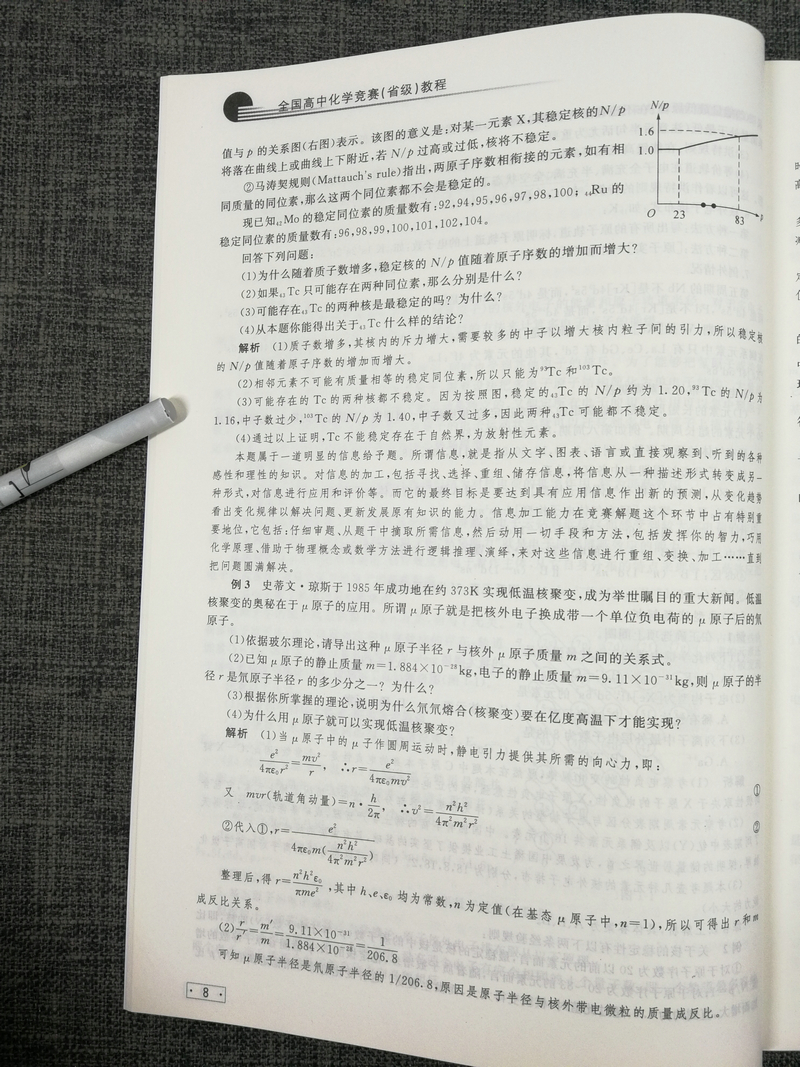 全国高中化学竞赛(省级)教程
值与 p 的关系图(右图)表示。该图的意义是:对某一元素 X,其稳定核的 N/p
将落在曲线上或曲线上下附近,若 N/p 过高或过低,核将不稳定。
②马涛契规则(Mattauch's rule)指出,两原子序数相衔接的元素,如有相
同质量的同位素,那么这两个同位素都不会是稳定的。
现已知₄₂Mo 的稳定同位素的质量数有:92,94,95,96,97,98,100;₄₄Ru 的
稳定同位素的质量数有:96,98,99,100,101,102,104。
N/p
1.6
1.0
O 23 83
回答下列问题:
(1)为什么随着质子数增多,稳定核的 N/p 值随着原子序数的增加而增大?
(2)如果₄₃Tc 只可能存在两种同位素,那么分别是什么?
(3)可能存在₄₃Tc 的两种核是最稳定的吗?为什么?
(4)从本题你能得出关于₄₃Tc 什么样的结论?
解析 (1)质子数增多,其核内的斥力增大,需要较多的中子以增大核内粒子间的引力,所以稳定核
的 N/p 值随着原子序数的增加而增大。
(2)相邻元素不可能有质量相等的稳定同位素,所以只能为⁹³Tc 和¹⁰³Tc。
(3)可能存在的 Tc 的两种核都不稳定。因为按照图,稳定的₄₃Tc 的 N/p 约为 1.20,⁹³Tc 的 N/p 为
1.16,中子数过少,¹⁰³Tc 的 N/p 为 1.40,中子数又过多,因此两种₄₃Tc 可能都不稳定。
(4)通过以上证明,Tc 不能稳定存在于自然界,为放射性元素。
本题属于一道明显的信息给予题。所谓信息,就是指从文字、图表、语言或直接观察到、听到的各种
感性和理性的知识。对信息的加工,包括寻找、选择、重组、储存信息,将信息从一种描述形式转变成另一
种形式,对信息进行应用和评价等。而它的最终目标是要达到具有应用信息作出新的预测,从变化趋势
看出变化规律以解决问题、更新发展原有知识的能力。信息加工能力在竞赛解题这个环节中占有特别重
要地位,它包括:仔细审题、从题干中摘取所需信息,然后动用一切手段和方法,包括发挥你的智力,巧用
化学原理、借助于物理概念或数学方法进行逻辑推理、演绎,来对这些信息进行重组、变换、加工……直到
把问题圆满解决。
例 3 史蒂文·琼斯于 1985 年成功地在约 373K 实现低温核聚变,成为举世瞩目的重大新闻。低温
核聚变的奥秘在于 μ 原子的应用。所谓 μ 原子就是把核外电子换成带一个单位负电荷的 μ 原子后的氘
原子。
(1)依据玻尔理论,请导出这种 μ 原子半径 r 与核外 μ 原子质量 m 之间的关系式。
(2)已知 μ 原子的静止质量 m=1.884×10⁻²⁸kg,电子的静止质量 m=9.11×10⁻³¹kg,则 μ 原子的半
径 r 是氘原子半径 r 的多少分之一?为什么?
(3)根据你所掌握的理论,说明为什么氘氘熔合(核聚变)要在亿度高温下才能实现?
(4)为什么用 μ 原子就可以实现低温核聚变?
解析 (1)当 μ 原子中的 μ 子作圆周运动时,静电引力提供其所需的向心力,即:
e²/4πε₀r²=mv²/r, ∴r=e²/4πε₀mv² ①
又 mvr(轨道角动量)=n·h/2π, ∴v²=n²h²/4π²m²r² ②
②代入①,r=e²/4πε₀m(n²h²/4π²m²r²)
整理后,得 r=n²h²ε₀/πme²,其中 h、e、ε₀ 均为常数,n 为定值(在基态 μ 原子中,n=1),所以可得出 r 和 m
成反比关系。
(2)r/r′=m′/m=9.11×10⁻³¹/1.884×10⁻²⁸=1/206.8
可知 μ 原子半径是氘原子半径的 1/206.8,原因是原子半径与核外带电微粒的质量成反比。
·8·